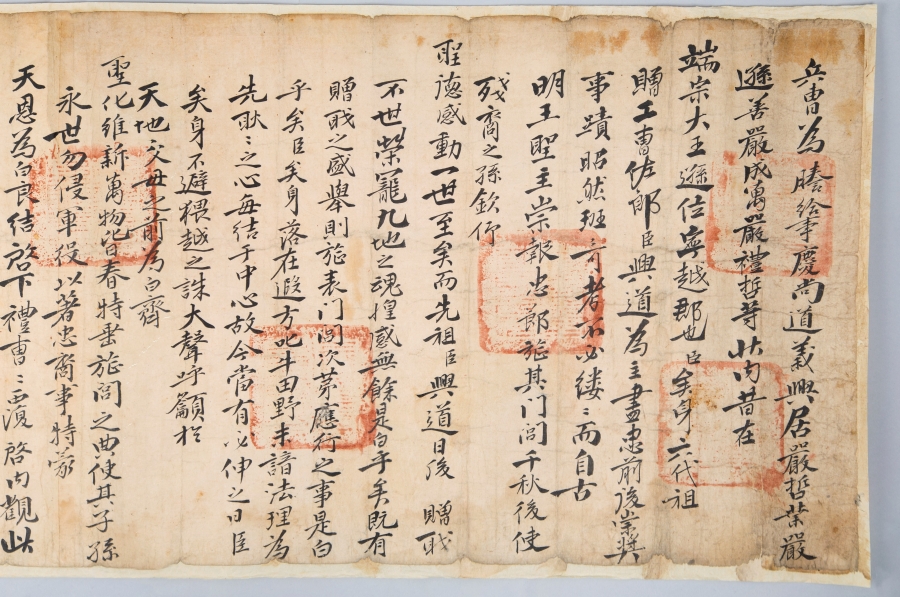 兵曺為謄給事慶尚道義興居嚴哲業嚴
遜善嚴成萬嚴禮哲等狀內昔在
端宗大王遜位寧越郡也臣矣身六代祖
贈工曺佐郎臣興道為主盡忠前後崇奬
事蹟昭然班〻可考不必縷〻而自古
明王聖主崇報忠節旌其门閭千秋後使
殘裔之孫欽仰
聖德感動一世至矣而先祖臣興道日後贈戢
不世榮寵九地之魂惶感無餘是白乎矣既有
贈戢之盛舉則旌表门閭次苐應行之事是白
乎矣臣矣身落在遐方此牛田野未諳法理為
先耿〻之心每結于中心故今當有必伸之日臣
矣身不避猥越之誅大聲呼籲扵
天地父母之前為白齊
聖化維新萬物皆春特垂旌閭之典使其子孫
永世勿侵軍役以著忠裔事特蒙
天恩為白良結啓下禮曺〻西湏啓內觀此